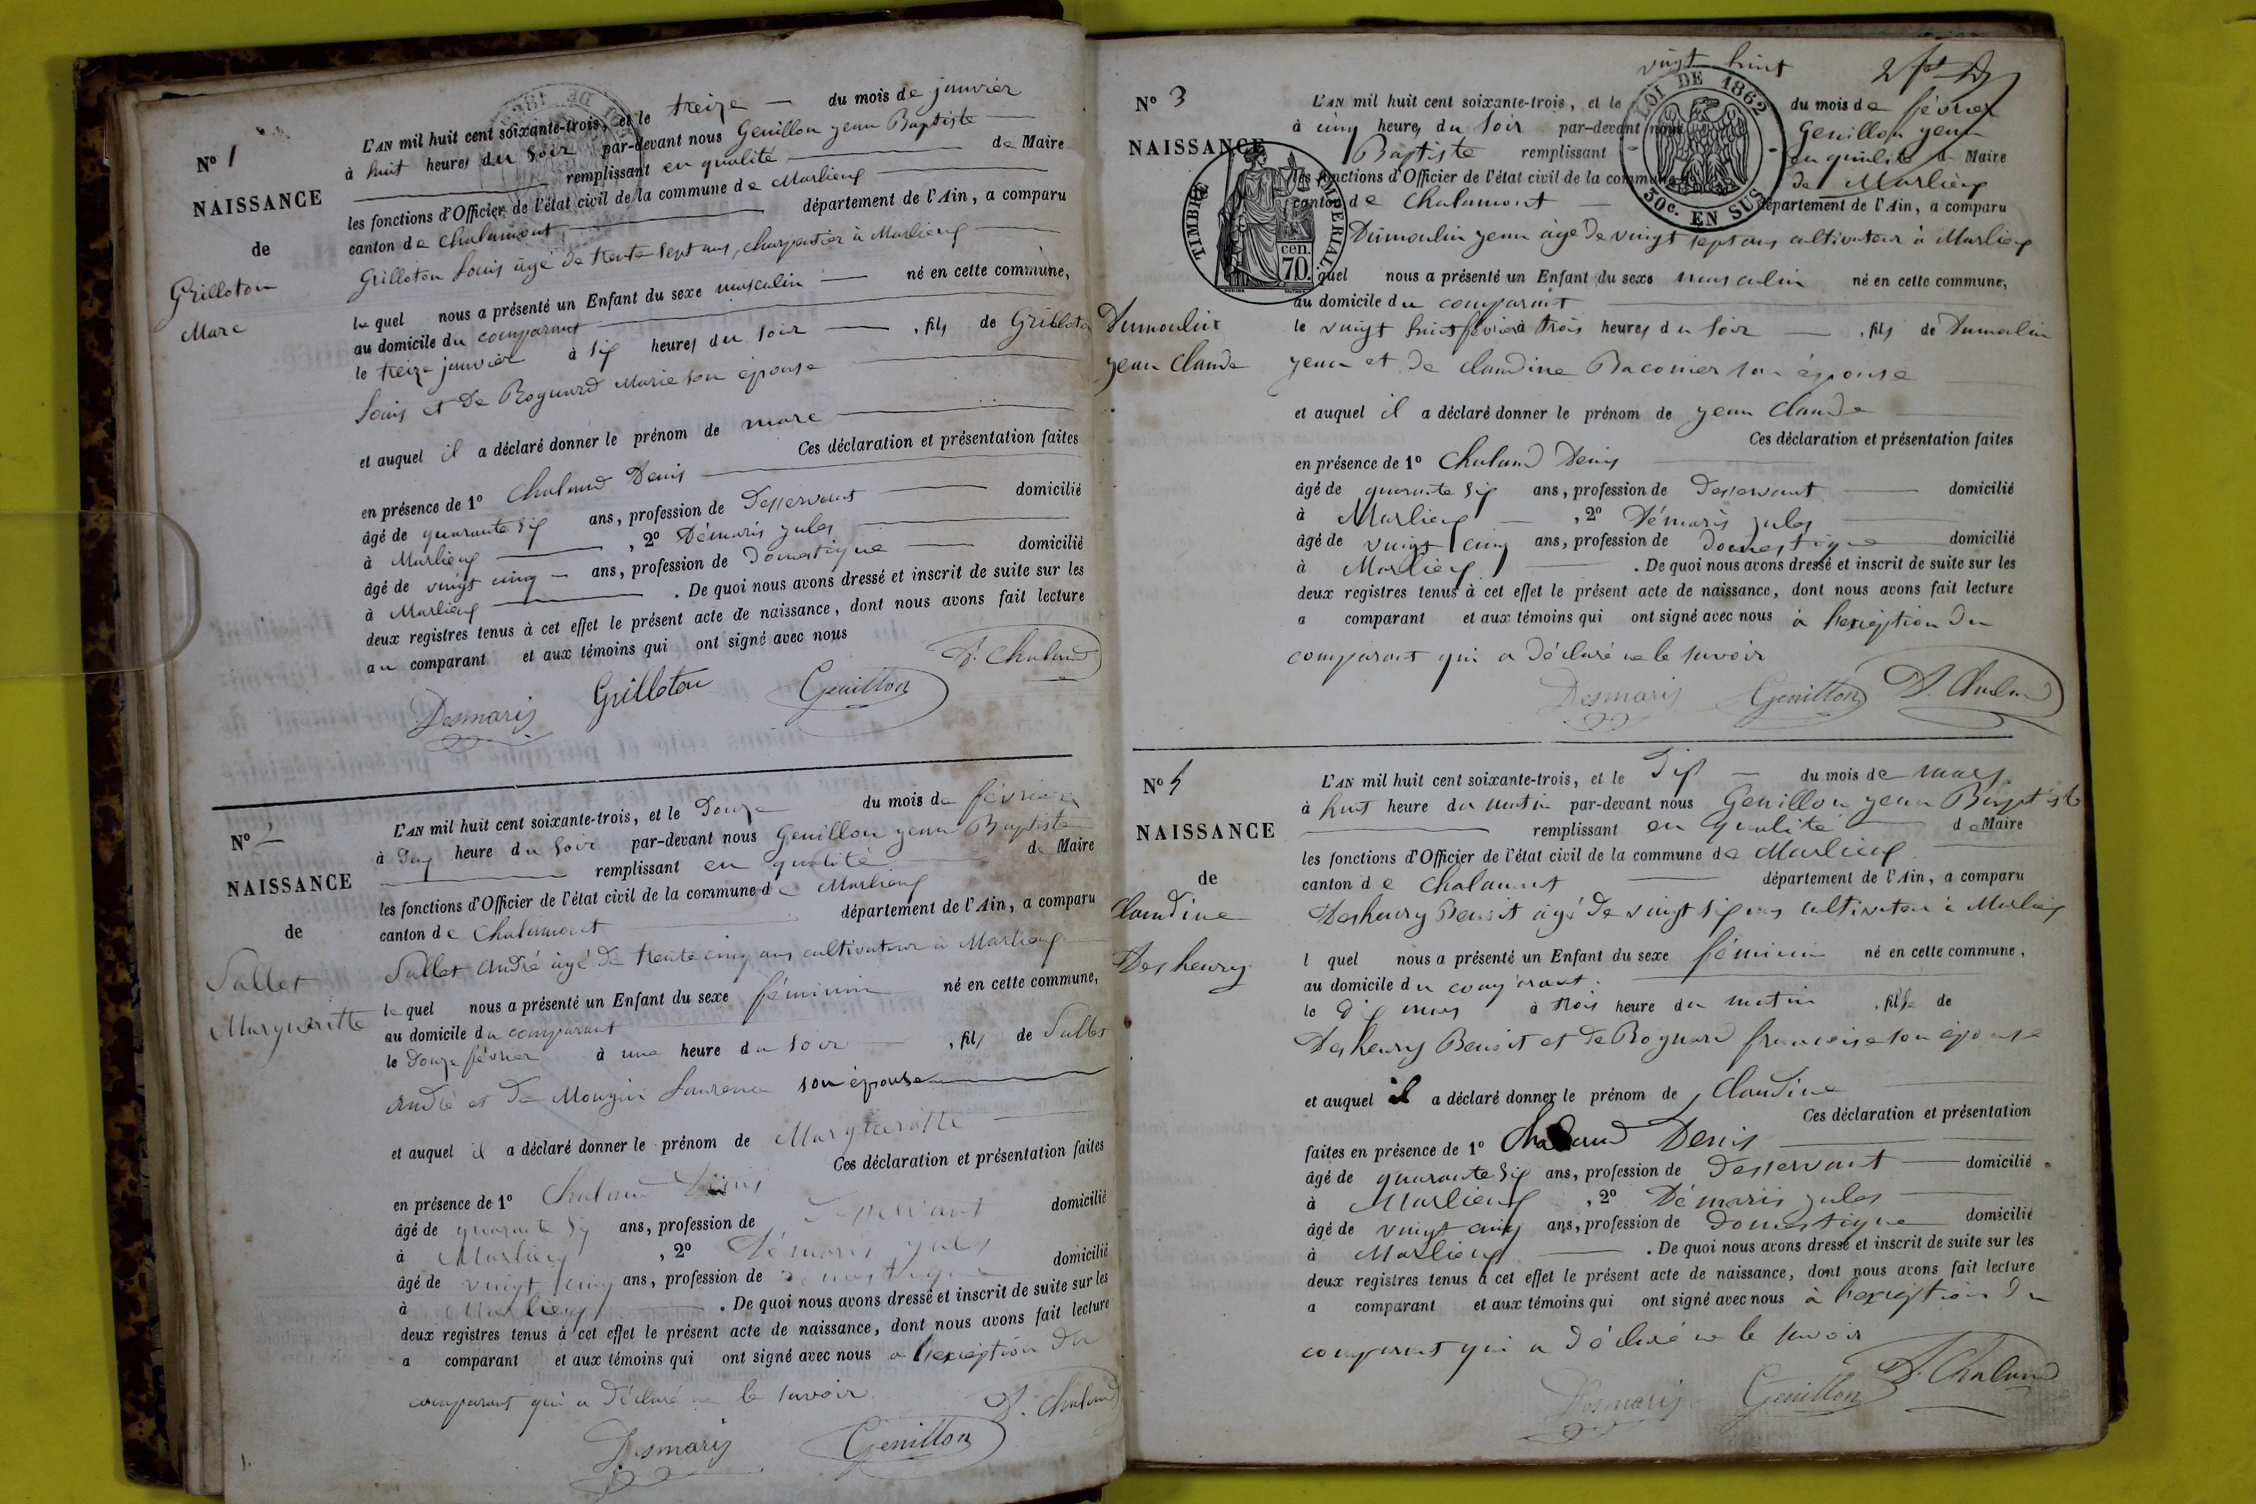 N° 1
NAISSANCE
de
Grilloton
Marc
L'AN mil huit cent soixante-trois, et le treize du mois de janvier
à huit heures du soir par-devant nous Genillon jean Baptiste
remplissant en qualité de Maire
les fonctions d'Officier de l'état civil de la commune de Marlieux
canton de Chalamont département de l'Ain, a comparu
Grilloton Louis âgé de trente sept ans, charpentier à Marlieux
le quel nous a présenté un Enfant du sexe masculin né en cette commune,
au domicile du comparant
le treize janvier à six heures du soir , fils de Grilloton
Louis et de Roguard Marie son épouse
et auquel il a déclaré donner le prénom de marc
Ces déclaration et présentation faites
en présence de 1° Chaland Denis
âgé de quarante six ans, profession de Desservant domicilié
à Marlieux , 2° Démaris jules
âgé de vingt cinq ans, profession de domestique domicilié
à Marlieux . De quoi nous avons dressé et inscrit de suite sur les
deux registres tenus à cet effet le présent acte de naissance, dont nous avons fait lecture
au comparant et aux témoins qui ont signé avec nous
D. Chaland
Desmaris Grilloton Genillon
N° 2
NAISSANCE
de
Sallet
Margueritte
L'AN mil huit cent soixante-trois, et le Douze du mois de février
à heure du soir par-devant nous Genillon jean Baptiste
remplissant en qualité de Maire
les fonctions d'Officier de l'état civil de la commune de Marlieux
canton de Chalamont département de l'Ain, a comparu
Sallet André âgé de trente cinq ans cultivateur à Marlieux
le quel nous a présenté un Enfant du sexe féminin né en cette commune,
au domicile du comparant
le Douze février à une heure du soir , fils de Sallet
André et de Mougin Laurence son épouse
et auquel il a déclaré donner le prénom de Margueritte
Ces déclaration et présentation faites
en présence de 1° Chaland Denis
âgé de quarante six ans, profession de Desservant domicilié
à Marlieux , 2° Démaris jules
âgé de vingt cinq ans, profession de domestique domicilié
à Marlieux . De quoi nous avons dressé et inscrit de suite sur les
deux registres tenus à cet effet le présent acte de naissance, dont nous avons fait lecture
a comparant et aux témoins qui ont signé avec nous a l'exception du
comparant qui a déclaré ne le savoir
D. Chaland
Desmaris Genillon
N° 3
NAISSANCE
Dumoulin
jean Claude
vingt huit
LOI DE 1862
30c. EN SUS
TIMBRE IMPERIAL
70 cen.
L'AN mil huit cent soixante-trois, et le du mois de février
à cinq heures du soir par-devant nous Genillon jean
Baptiste remplissant en qualité de Maire
les fonctions d'Officier de l'état civil de la commune de Marlieux
canton de Chalamont département de l'Ain, a comparu
Dumoulin jean âgé de vingt sept ans cultivateur à Marlieux
quel nous a présenté un Enfant du sexe masculin né en cette commune,
au domicile du comparant
le vingt huit février à trois heures du soir , fils de Dumoulin
jean et de Claudine Baconier son épouse
et auquel il a déclaré donner le prénom de jean Claude
Ces déclaration et présentation faites
en présence de 1° Chaland Denis
âgé de quarante six ans, profession de Desservant domicilié
à Marlieux , 2° Démaris jules
âgé de vingt cinq ans, profession de domestique domicilié
à Marlieux . De quoi nous avons dressé et inscrit de suite sur les
deux registres tenus à cet effet le présent acte de naissance, dont nous avons fait lecture
a comparant et aux témoins qui ont signé avec nous à l'exception du
comparant qui a déclaré ne le savoir
Desmaris Genillon D. Chaland
N° 4
NAISSANCE
de
Claudine
Deshenry
L'AN mil huit cent soixante-trois, et le Dix du mois de mars
à huit heure du matin par-devant nous Genillon jean Baptiste
remplissant en qualité de Maire
les fonctions d'Officier de l'état civil de la commune de Marlieux
canton de Chalamont département de l'Ain, a comparu
Deshenry Benoit âgé de vingt six ans cultivateur à Marlieux
l quel nous a présenté un Enfant du sexe féminin né en cette commune,
au domicile du comparant
le dix mars à trois heure du matin , fille de
Deshenry Benoit et de Roguard francoise son épouse
et auquel il a déclaré donner le prénom de Claudine
Ces déclaration et présentation
faites en présence de 1° Chaland Denis
âgé de quarante six ans, profession de Desservant domicilié
à Marlieux , 2° Démaris jules
âgé de vingt cinq ans, profession de domestique domicilié
à Marlieux . De quoi nous avons dressé et inscrit de suite sur les
deux registres tenus à cet effet le présent acte de naissance, dont nous avons fait lecture
a comparant et aux témoins qui ont signé avec nous à l'exception du
comparant qui a déclaré ne le savoir
Desmaris Genillon D. Chaland